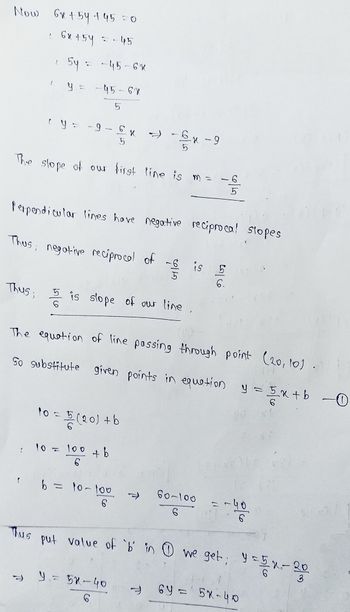 Now 6x + 5y + 45 = 0
: 6x + 5y = - 45
: 5y = - 45 - 6x
: y = (-45 - 6x)/5
: y = -9 - 6/5 x ⇒ -6/5 x - 9
The slope of our first line is m = -6/5
Perpendicular lines have negative reciprocal slopes
Thus, negative reciprocal of -6/5 is 5/6.
Thus, 5/6 is slope of our line.
The equation of line passing through point (20, 10).
So substitute given points in equation y = 5/6 x + b —①
10 = 5/6 (20) + b
: 10 = 100/6 + b
: b = 10 - 100/6 ⇒ (60-100)/6 = -40/6
Thus put value of 'b' in ① we get; y = 5/6 x - 20/3
⇒ y = (5x - 40)/6 ⇒ 6y = 5x - 40